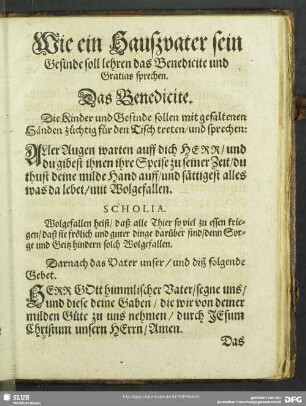 Wie ein Hauszvater sein
Gesinde soll lehren das Benedicite und
Gratias sprechen.
Das Benedicite.
Die Kinder und Gesinde sollen mit gefaltenen
Händen züchtig für den Tisch treten/ und sprechen:
ALler Augen warten auff dich HERR/ und
du gibest ihnen ihre Speise zu seiner Zeit/ du
thust deine milde Hand auff/ und sättigest alles
was da lebet/ mit Wolgefallen.
SCHOLIA.
Wolgefallen heist/ daß alle Thier so viel zu essen krie-
gen/ daß sie frölich und guter dinge darüber sind/ denn Sor-
ge und Geitz hindern solch Wolgefallen.
Darnach das Vater unser/ und diß folgende
Gebet.
HERR GOtt himmlischer Vater/ segne uns/
und diese deine Gaben/ die wir von deiner
milden Güte zu uns nehmen/ durch JEsum
Christum unsern HErrn/ Amen.
Das
SLUB
DFG